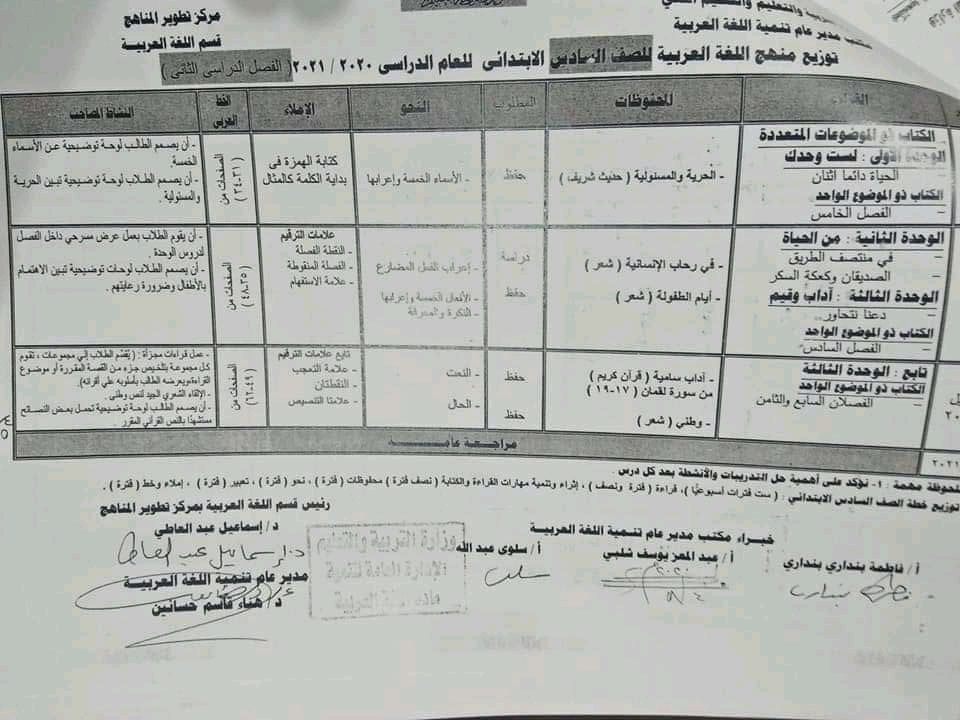 والتعليم
مركز تطوير المناهج
مكتب مدير عام تنمية اللغة العربية
قسم اللغة العربية
توزيع منهج اللغة العربية للصف السادس الابتدائى للعام الدراسى ٢٠٢٠ / ٢٠٢١ ( الفصل الدراسى الثانى )
المحفوظات
المطلوب
النحو
الإملاء
الخط العربى
النشاط المصاحب
الكتاب ذو الموضوعات المتعددة
الوحدة الأولى : لست وحدك
الحياة دائما اثنان
الكتاب ذو الموضوع الواحد
– الفصل الخامس
- الحرية والمسئولية ( حديث شريف )
حفظ
- الأسماء الخمسة وإعرابها
كتابة الهمزة فى
بداية الكلمة كالمثال
الصفحات من
(٣١-٣٤)
- أن يصمم الطالب لوحة توضيحية عن الأسماء
الخمسة.
- أن يصمم الطلاب لوحة توضيحية تبين الحرية
والمسئولية .
الوحدة الثانية : من الحياة
– في منتصف الطريق
– الصديقان وكعكة السكر
الوحدة الثالثة : آداب وقيم
– دعنا نتحاور..
الكتاب ذو الموضوع الواحد
– الفصل السادس
- في رحاب الإنسانية ( شعر )
- أيام الطفولة ( شعر )
دراسة
حفظ
- إعراب الفعل المضارع
- الأفعال الخمسة وإعرابها
- النكرة والمعرفة
علامات الترقيم
- النقطة الفصلة
- الفصلة المنقوطة
- علامة الاستفهام
الصفحات من
(٣٥-٤٨)
- أن يقوم الطلاب بعمل عرض مسرحي داخل الفصل
لدروس الوحدة .
- أن يصمم الطلاب لوحات توضيحية تبين الاهتمام
بالأطفال وضرورة رعايتهم.
تابع : الوحدة الثالثة
الكتاب ذو الموضوع الواحد
– الفصلان السابع والثامن
- آداب سامية ( قرآن كريم )
من سورة لقمان (١٧-١٩)
- وطني ( شعر )
حفظ
حفظ
- النعت
- الحال
تابع علامات الترقيم
- علامة التعجب
- النقطتان
- علامتا التنصيص
الصفحات من
(٤٩-٦٢)
- عمل قراءات مجزأة : ( يُقسَّم الطلاب إلي مجموعات ، تقوم
كل مجموعة بتلخيص جزء من القصة المقررة أو موضوع
القراءة،ويعرضه الطالب بأسلوبه علي أقرانه).
- الإلقاء الشعري الجيد لنص وطني .
- أن يصمم الطلاب لوحة توضيحية تحمل بعض النصائح
مستشهدًا بالنص القرآني المقرر .
٢٠٢١
مراجعة عامة
ملحوظة مهمة : ١- نؤكد على أهمية حل التدريبات والأنشطة بعد كل درس .
توزيع خطة الصف السادس الابتدائي : ( ست فترات أسبوعيًّا )، قراءة ( فترة ونصف ) ، إثراء وتنمية مهارات القراءة والكتابة ( نصف فترة ) محفوظات ( فترة ) ، نحو ( فترة ) ، تعبير ( فترة ) ، إملاء وخط ( فترة ) .
خبراء مكتب مدير عام تنمية اللغة العربية
رئيس قسم اللغة العربية بمركز تطوير المناهج
أ / فاطمة بنداري بنداري
أ / عبد المعز يوسف شلبي
أ / سلوى عبد الله
د / إسماعيل عبد العاطي
د. إسماعيل عبد العاطي
سلوى
مدير عام تنمية اللغة العربية
د / هناء قاسم حسانين
وزارة التربية والتعليم
الإدارة العامة لتنمية
مادة اللغة العربية